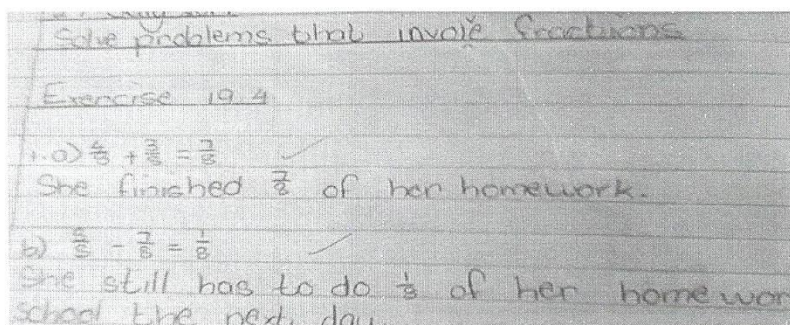 Solve problems that involve fractions
Exercise 19.4
1.a) 4/8 + 3/8 = 7/8
She finished 7/8 of her homework.
b) 8/8 - 7/8 = 1/8
She still has to do 1/8 of her homewor
school the next day